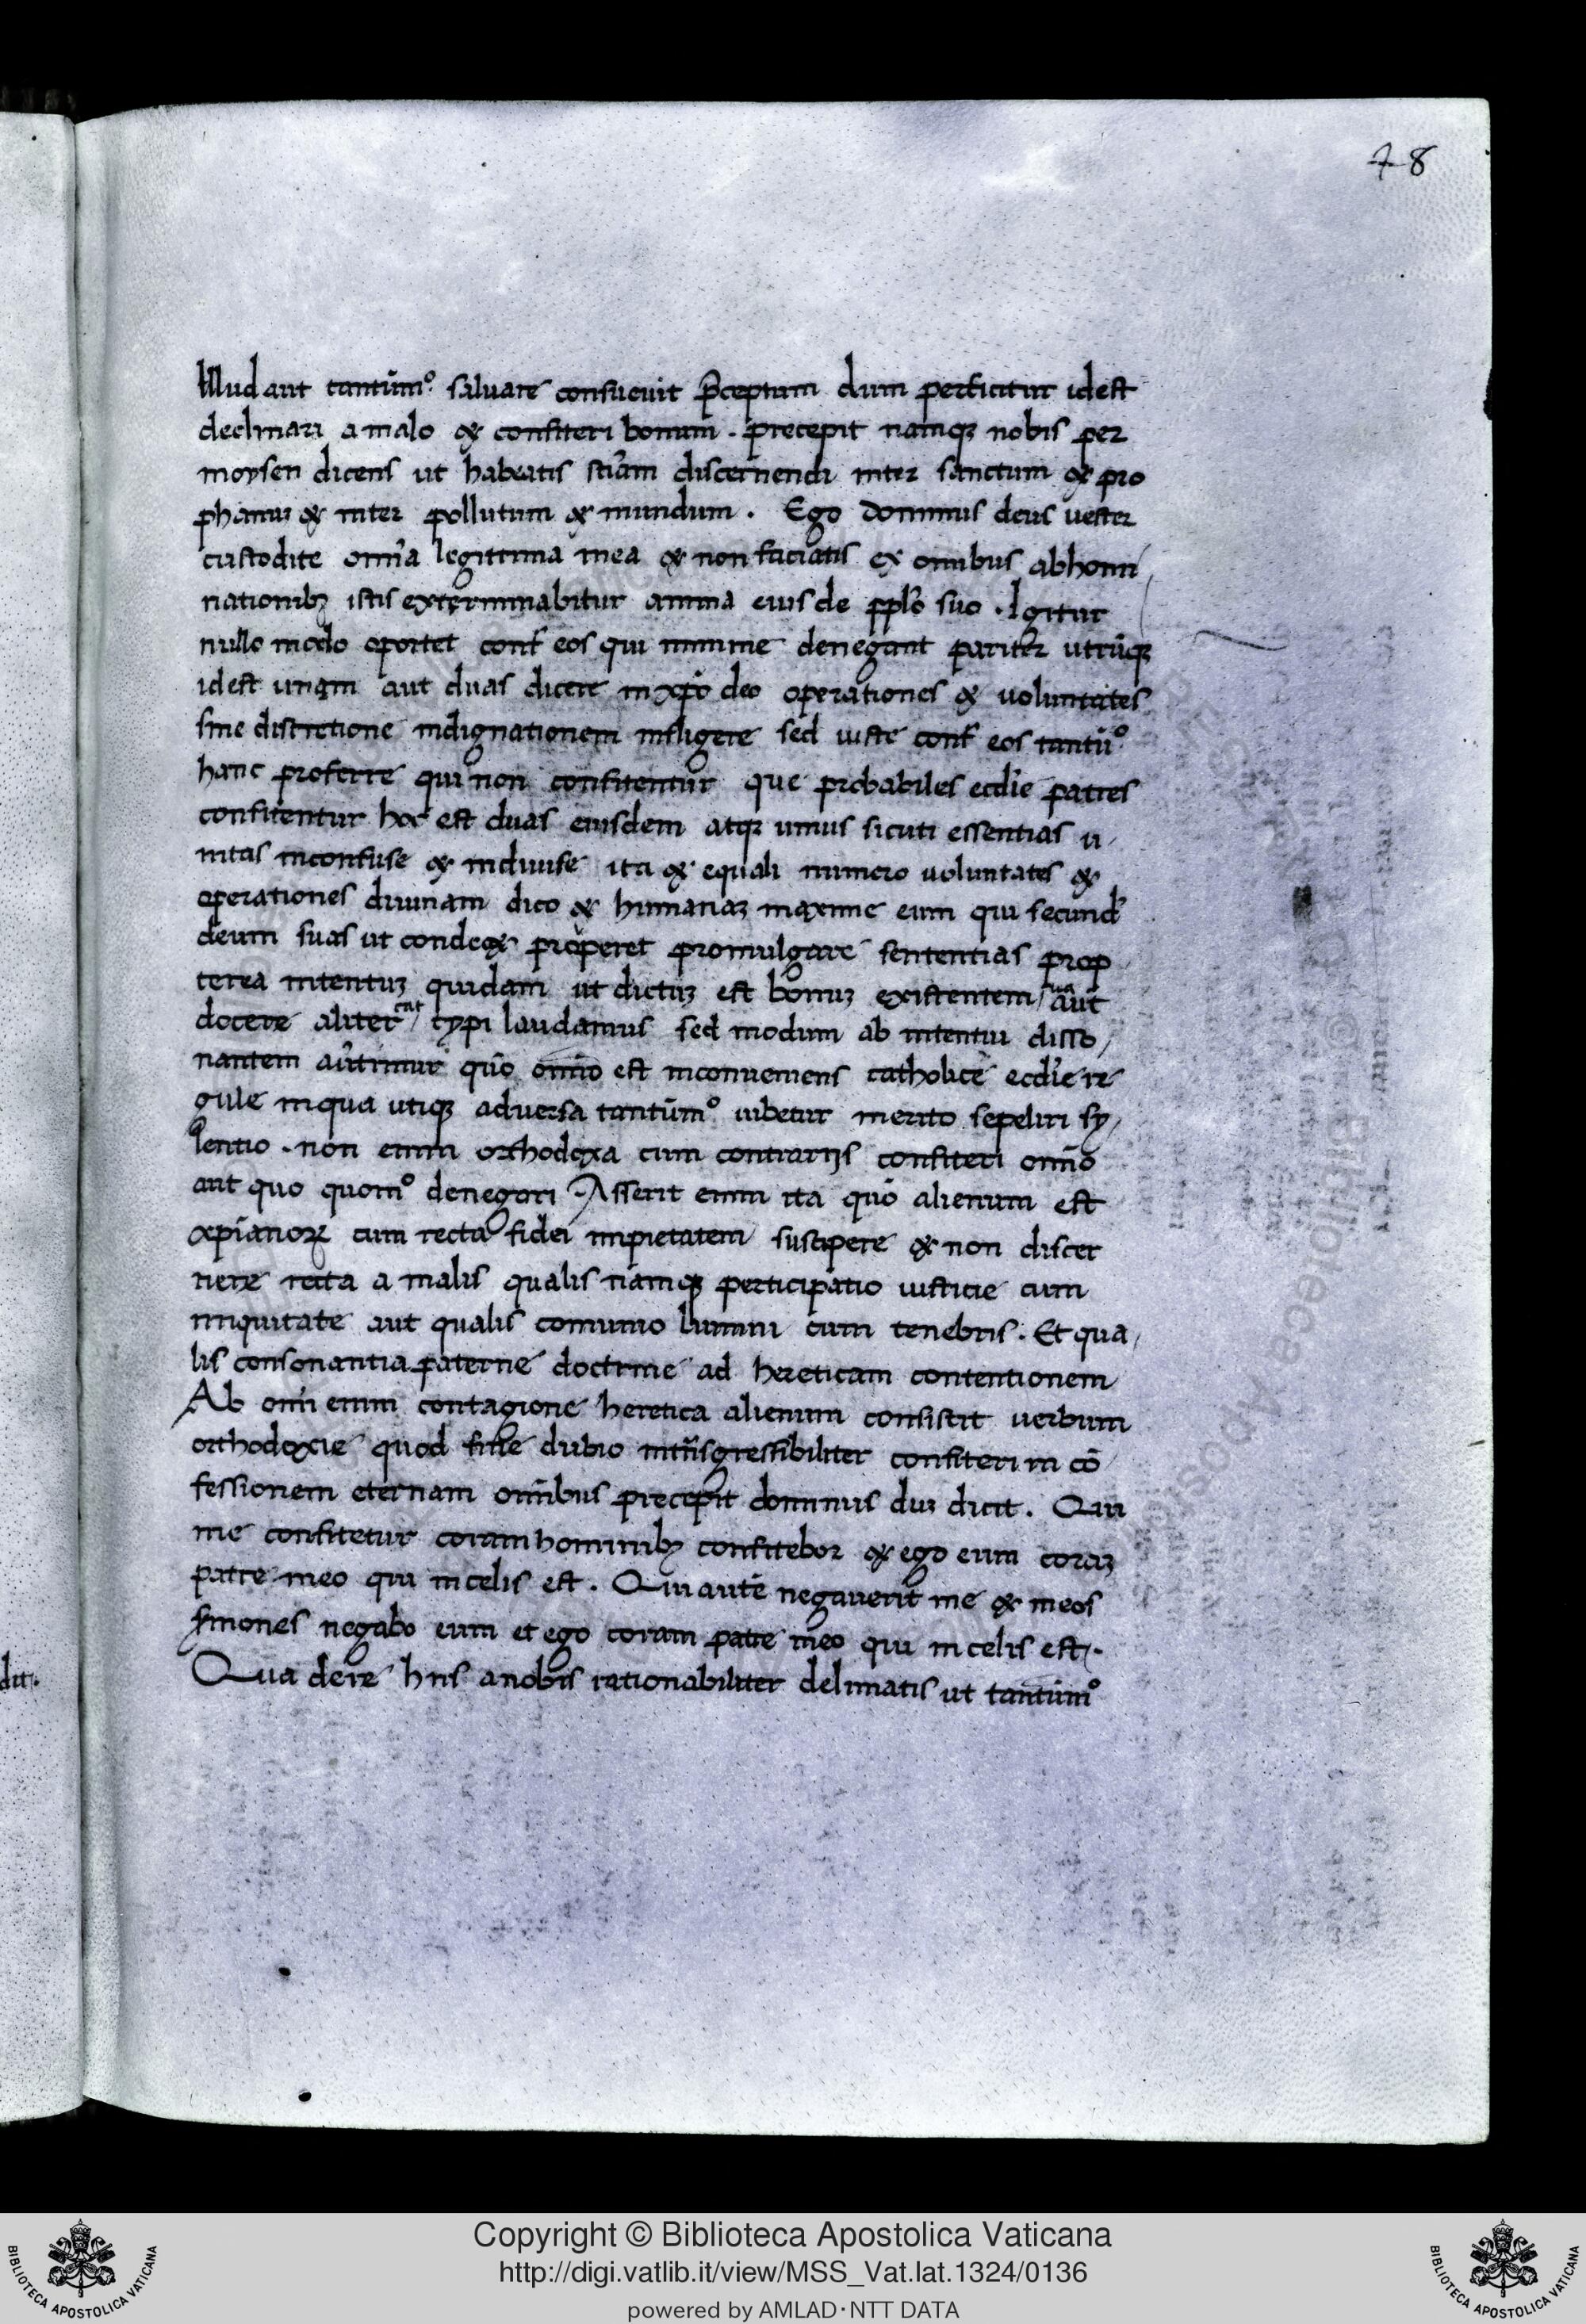 78
Illud aut tantūmº saluare consueuit p̄ceptum dum perficitur idest
declinari a malo & confiteri bonum . precepit namq; nobis per
moysen dicens ut habeatis sciam discernendi inter sanctum & pro
phanuȝ & inter pollutum & mundum . Ego dominus deus uester
custodite omīa legittima mea & non faciatis ex omībus abhomi
nationibȝ istis exterminabitur anima eius de pplo suo . Igitur
nullo modo oportet cont eos qui minime denegant pariter utrūqȝ
idest unam aut duas dicere in xpo deo operationes & uoluntates
sine discretione indignationem infligere sed iuste cont eos tantūº
hanc proferre qui non confitentur que probabiles ecclie patres
confitentur hoc est duas eiusdem atqȝ unius sicuti essentias u
nitas inconfuse & indiuise ita & equali numero uoluntates &
operationes diuinam dico & humanaȝ maxime eum qui secund
deum suas ut condecet properet promulgare sententias prop
terea intentuȝ quidam ut dictuȝ est bonuȝ existentem aut
docere aliter typi laudamus sed modum ab intentu disso
nantem quō omīo est inconueniens catholice ecclie re
gule in qua utiqȝ aduersa tantūmº iubetur merito sepeliri sy
lentio . non enim orthodoxa cum contrarijs confiteri omīo
aut quo quomº denegari Asserit enim ita quō alienum est
xpianorȝ cum recta fidei impietatem suscipere & non discer
nere recta a malis qualis namqȝ perticipatio iusticie cum
iniquitate aut qualis comunio lumini cum tenebris . Et qua
lis consonantia paterne doctrine ad hereticam contentionem
Ab omī enim contagione heretica alienum consistit uerbum
orthodoxie quod sine dubio confiteri in cō
fessionem eternam omībus precepit dominus duȝ dicit . Qui
me confitetur coram hominibȝ confitebor & ego eum coraȝ
patre meo qui in celis est . Qui autē negauerit me & meos
s̄mones negabo eum et ego coram patre meo qui in celis est .
Qua de re hiis a nobis rationabiliter delimatis ut tantūmº
Copyright © Biblioteca Apostolica Vaticana
http://digi.vatlib.it/view/MSS_Vat.lat.1324/0136
powered by AMLAD·NTT DATA
BIBLIOTECA APOSTOLICA VATICANA
BIBLIOTECA APOSTOLICA VATICANA